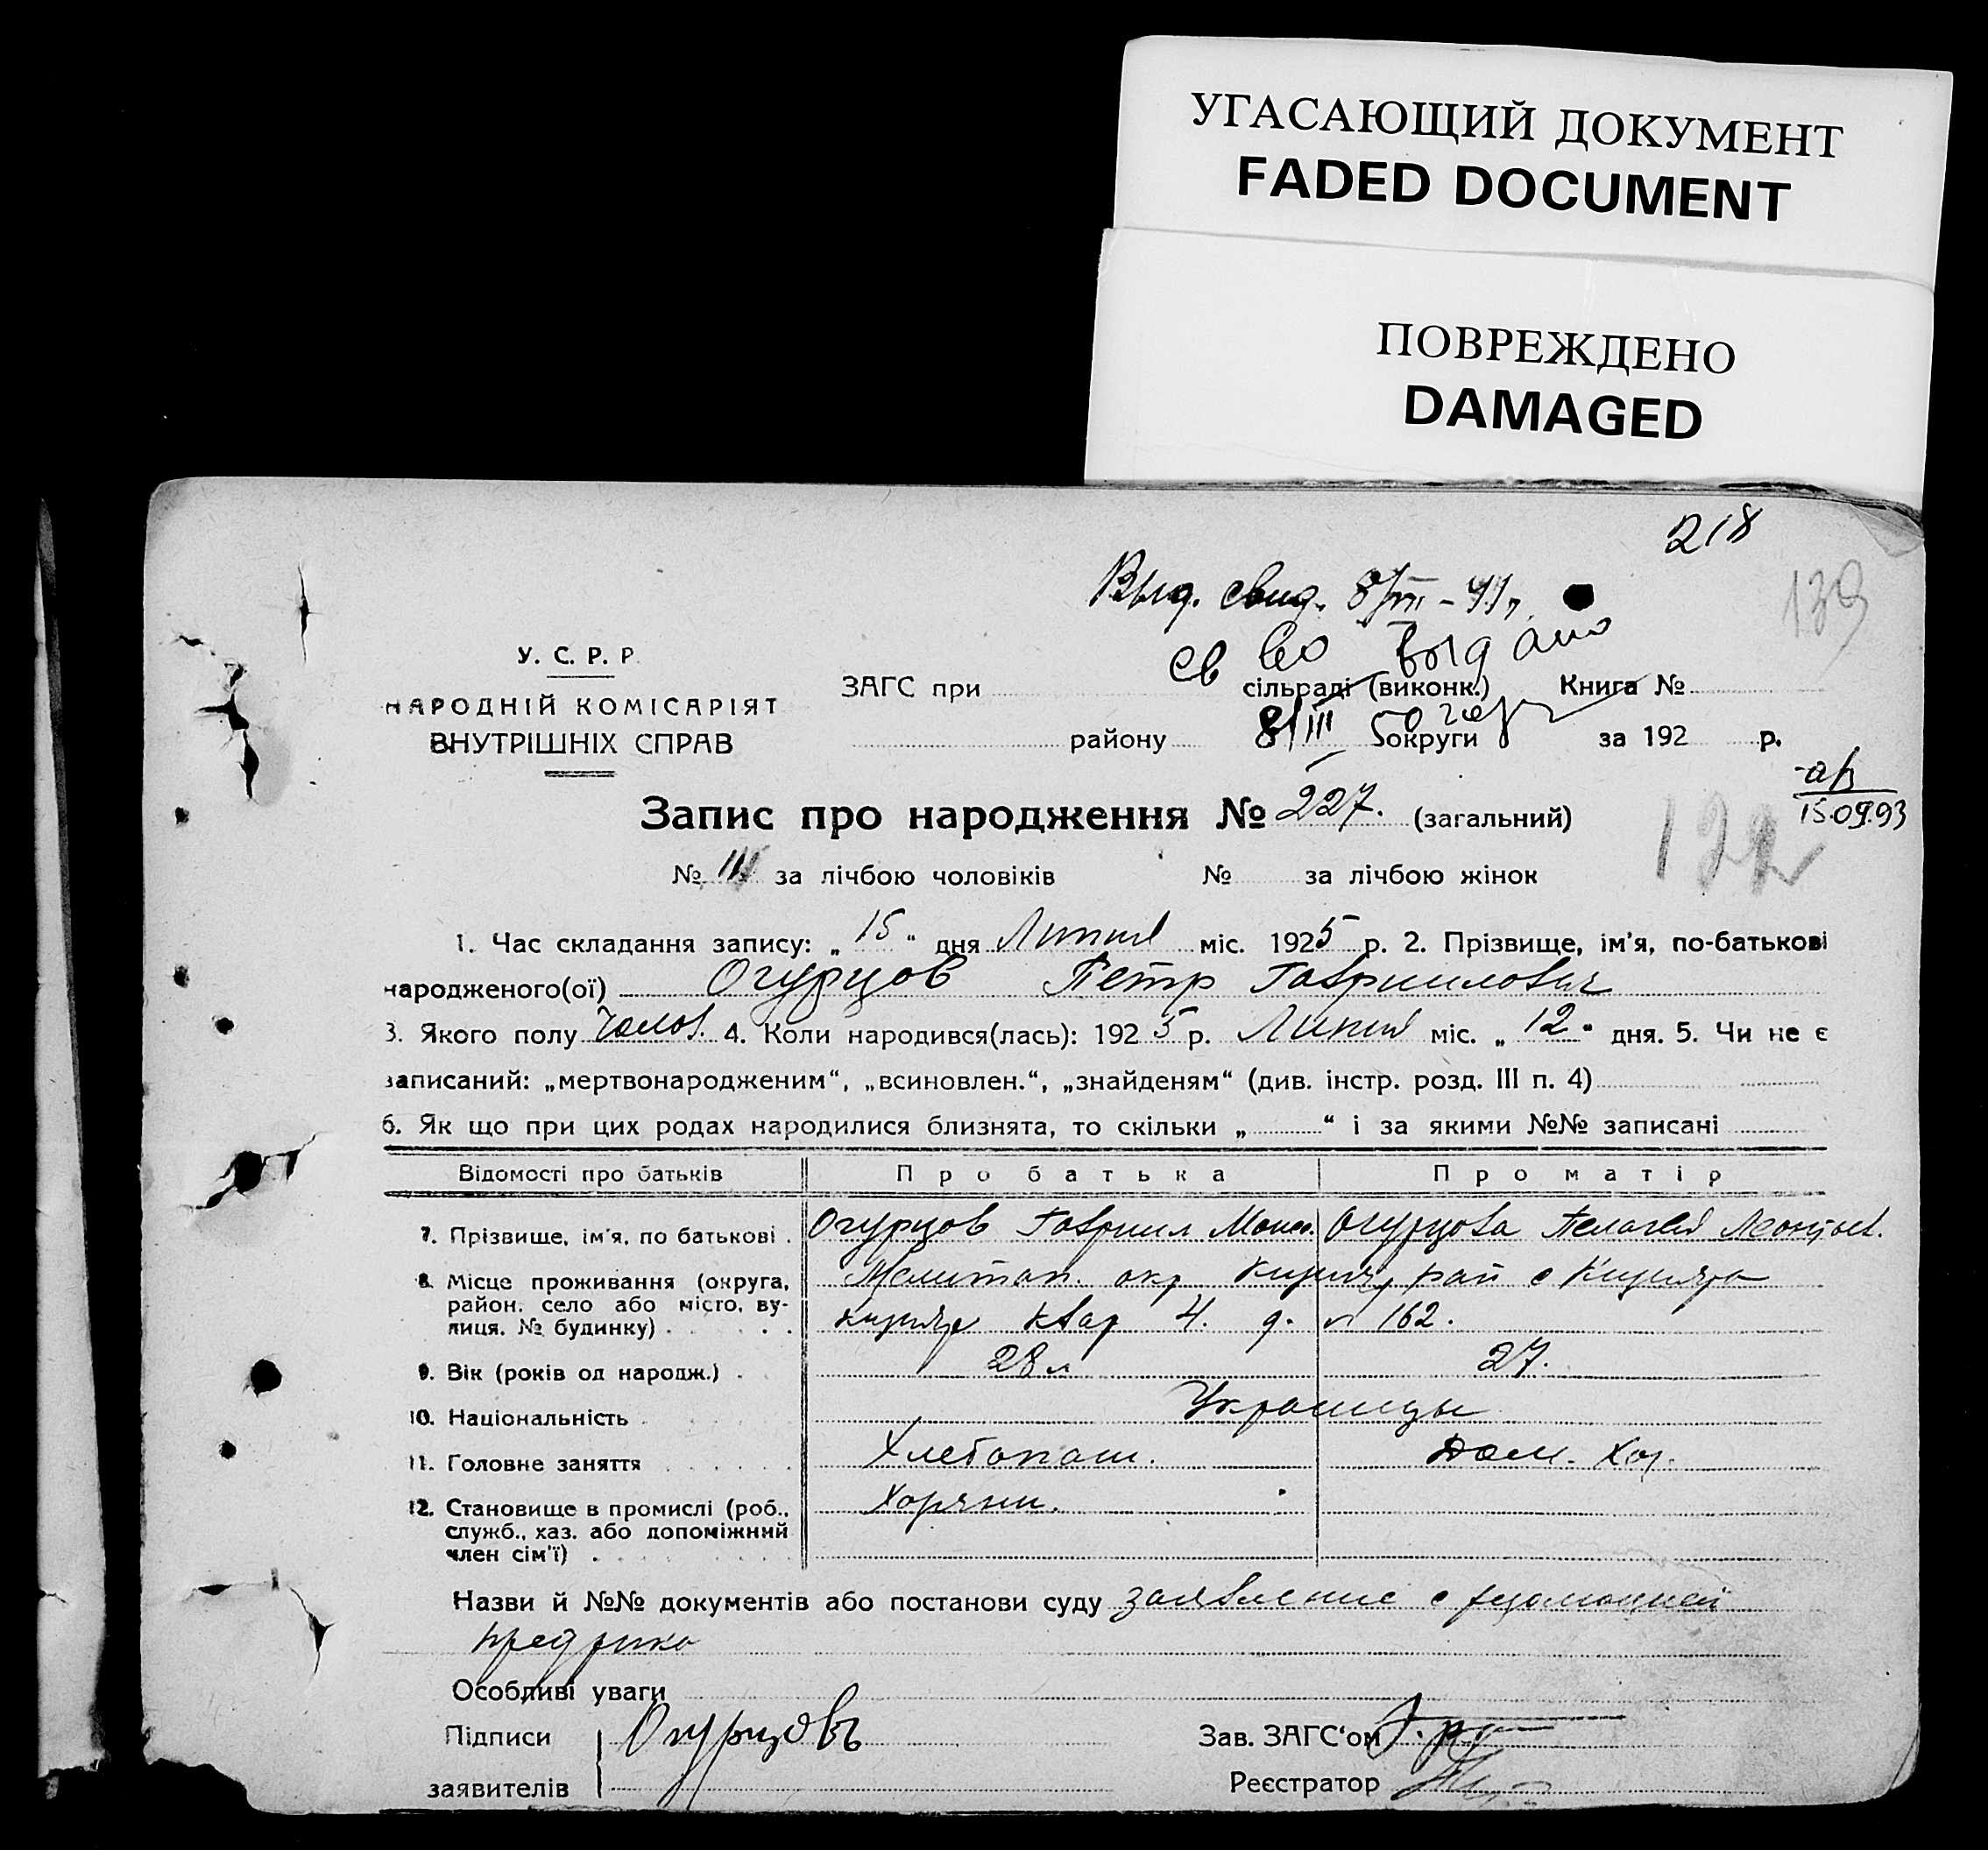 УГАСАЮЩИЙ ДОКУМЕНТ
FADED DOCUMENT
ПОВРЕЖДЕНО
DAMAGED
218
Выд. свид. 8/III-41г.
139
Св во выдано
У. С. Р. Р.
ЗАГС при сільраді (виконк.) Книга №
НАРОДНІЙ КОМІСАРІЯТ
ВНУТРІШНІХ СПРАВ
району округи за 192 р.
8/III 50
15.09.93
Запис про народження № 227. (загальний)
122
№ 111 за лічбою чоловіків № за лічбою жінок
1. Час складання запису: „ 15 “ дня Липня міс. 1925 р. 2. Прізвище, ім'я, по-батькові
народженого(ої) Огурцов Петр Гавриилович
3. Якого полу Чолов. 4. Коли народився(лась): 1925 р. Липня міс. „ 12 “ дня. 5. Чи не є
записаний: „мертвонародженим“, „всиновлен.“, „знайденям“ (див. інстр. розд. III п. 4)
6. Як що при цих родах народилися близнята, то скільки „ “ і за якими №№ записані
Відомості про батьків Про батька Про матір
7. Прізвище, ім'я, по батькові Огурцов Гавриил Моис. Огурцова Пелагея Леонтьев.
8. Місце проживання (округа, район, село або місто, вулиця, № будинку) Мелитоп. окр
квар 4. д. № 162.
9. Вік (років од народж.) 28 л 27.
10. Національність Украинцы
11. Головне заняття Хлебопаш. Дом. Хоз.
12. Становище в промислі (роб.,
служб., хаз. або допоміжний
член сім'ї)
Назви й №№ документів або постанови суду заявление с резолюцией
Особливі уваги
Підписи Огурцовъ Зав. ЗАГС'ом
заявителів Реєстратор